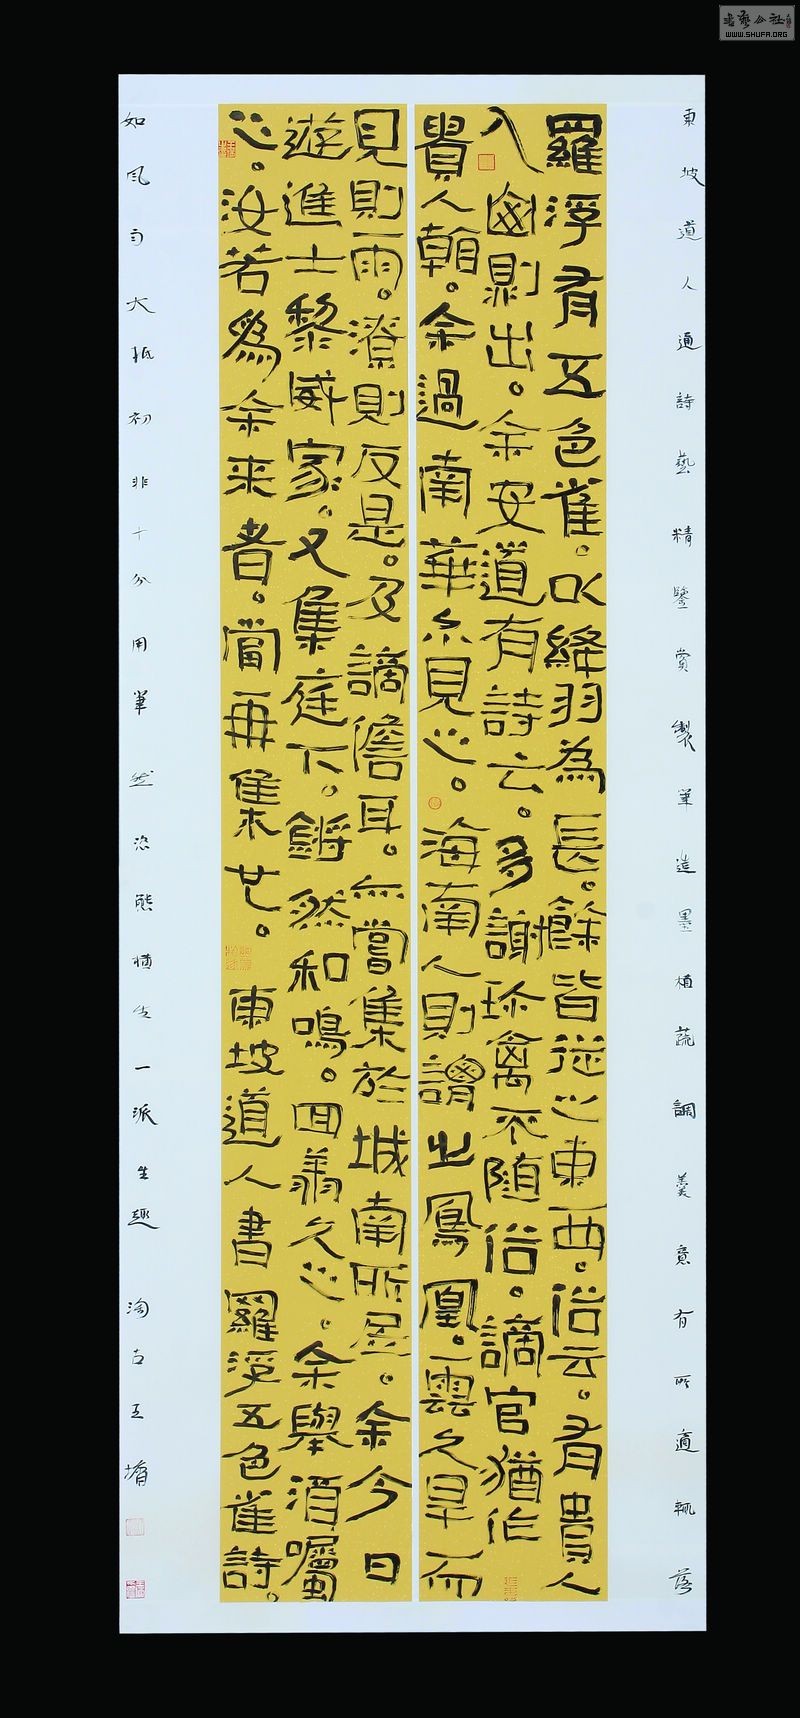 書藝公社
WWW.SHUFA.ORG
東坡道人通詩藝精鑒賞製筆造墨植蔬調羹意有所適輒落
羅浮有五色雀。以絳羽為長。餘皆從之東西。俗云。有貴人
入則出。余安道有詩云。多謝珍禽不隨俗。謫官猶作
貴人朝。余過南華亦見之。海南人則謂之鳳凰。雲久旱而
見則雨。潦則反是。及謫儋耳。亦嘗集於城南所居。余今日
遊進士黎威家。又集庭下。鏘然和鳴。回翔久之。余舉酒囑
之。汝若為余來者。當再集也。東坡道人書羅浮五色雀詩。
如風大抵初非十分用筆然恣態橫生一派生趣 淘古王